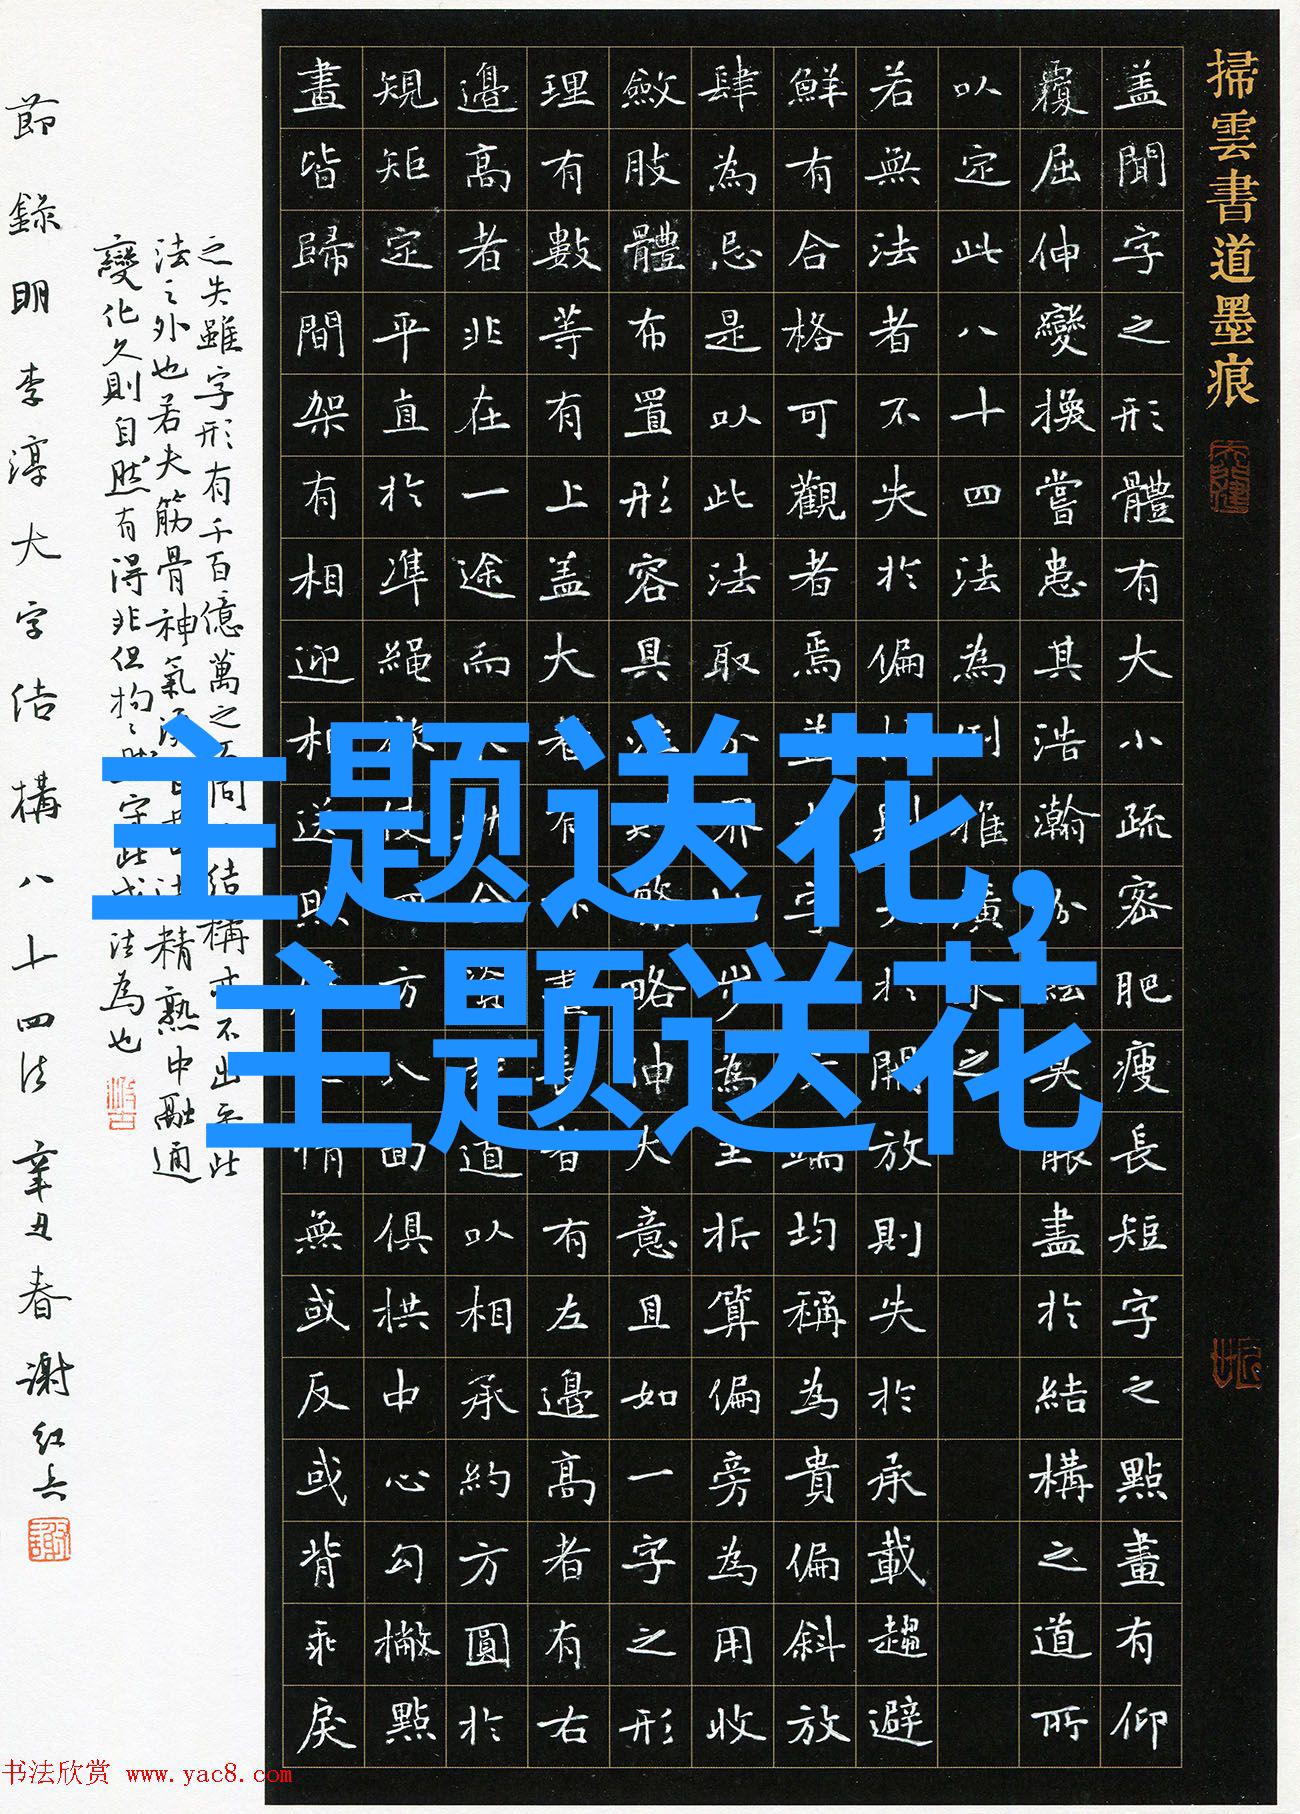 掃雲書道墨痕
盖聞字之形體有大小疏密肥瘦長短字之點畫有仰
覆屈伸變換嘗患其浩瀚紛紜莫能盡於結構之道所
以定此八十四法為例推廣求之
若無法者不失於偏則失於開放則失於承載趨避
鮮有合格可觀者焉盖字大端均稱為貴偏斜放
肆為忌是以此法取分界步為主折算偏旁為用收
斂肢體布置形容具則繁略伸大意且如一字之形
理有數等有上盖大者有下畫長者有左邊高者有右
邊高者非在一途而道以相承約方圓於
規矩定平直於準繩使四方八面俱拱中心勾撇點
畫皆歸間架有相迎相送照應之情無或反或背乖戾
之失雖字形有千百億萬之不同結構亦不出乎此
法之外也若夫筋骨神氣精熟中融通
變化久則自然有得非但拘守此法為也
節錄明李淳大字結構八十四法辛丑春謝紅兵
主题送花,
主题送花
书法欣赏 www.yac8.com